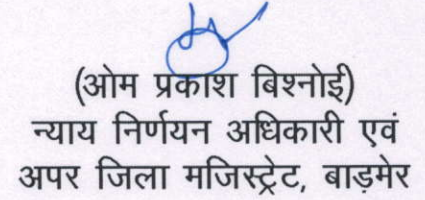 (ओम प्रकाश बिश्नोई)
न्याय निर्णयन अधिकारी एवं
अपर जिला मजिस्ट्रेट, बाड़मेर